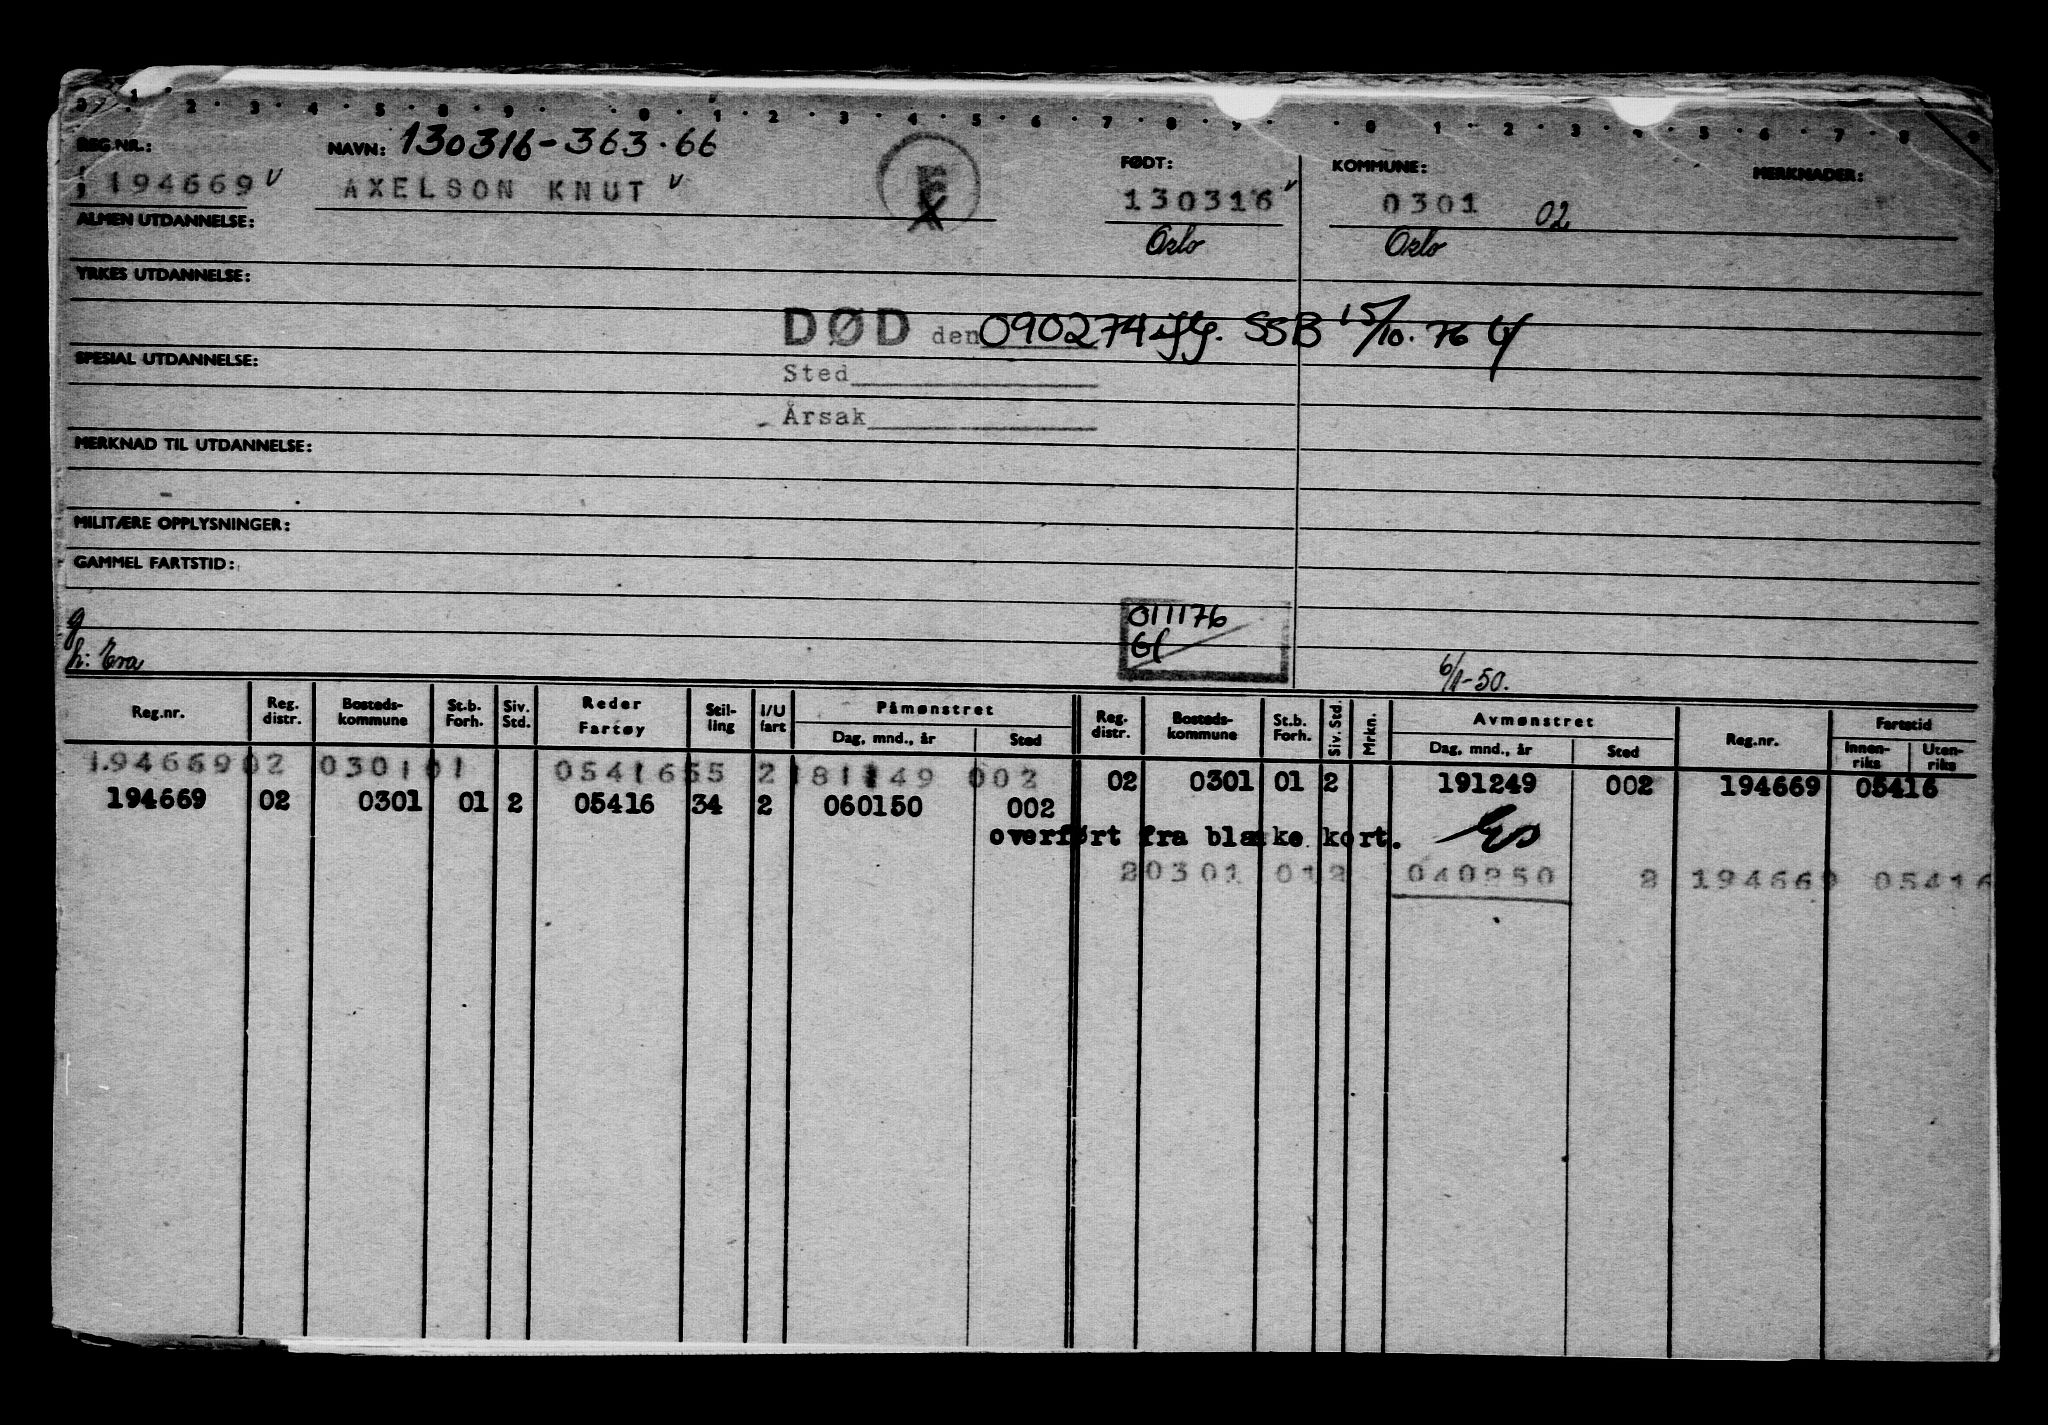 REG.NR.: NAVN: 130316-363.66 FØDT: KOMMUNE: MERKNADER:
194669 v AXELSON KNUT v 130316 v 0301 02
ALMEN UTDANNELSE: Oslo Oslo
YRKES UTDANNELSE:
DØD den 090274 iflg. SSB 15/10.76
SPESIAL UTDANNELSE: Sted
Årsak
MERKNAD TIL UTDANNELSE:
MILITÆRE OPPLYSNINGER:
GAMMEL FARTSTID:
g 011176
h: Eva 6/1-50.
Reg.nr. Reg. distr. Bosteds-kommune St.b. Forh. Siv. Std. Reder Fartøy Stil-ling I/U fart Påmønstret Dag, mnd., år Sted Reg. distr. Bosteds-kommune St.b. Forh. Siv. Std. Mrkn. Avmønstret Dag, mnd., år Sted Reg.nr. Fartstid Innen-riks Uten-riks
194669 02 0301 01 05416 55 2 181149 002 02 0301 01 2 191249 002 194669 05416
194669 02 0301 01 2 05416 34 2 060150 002
overført fra blanke kort.
2 0301 01 2 040250 2 194669 05416